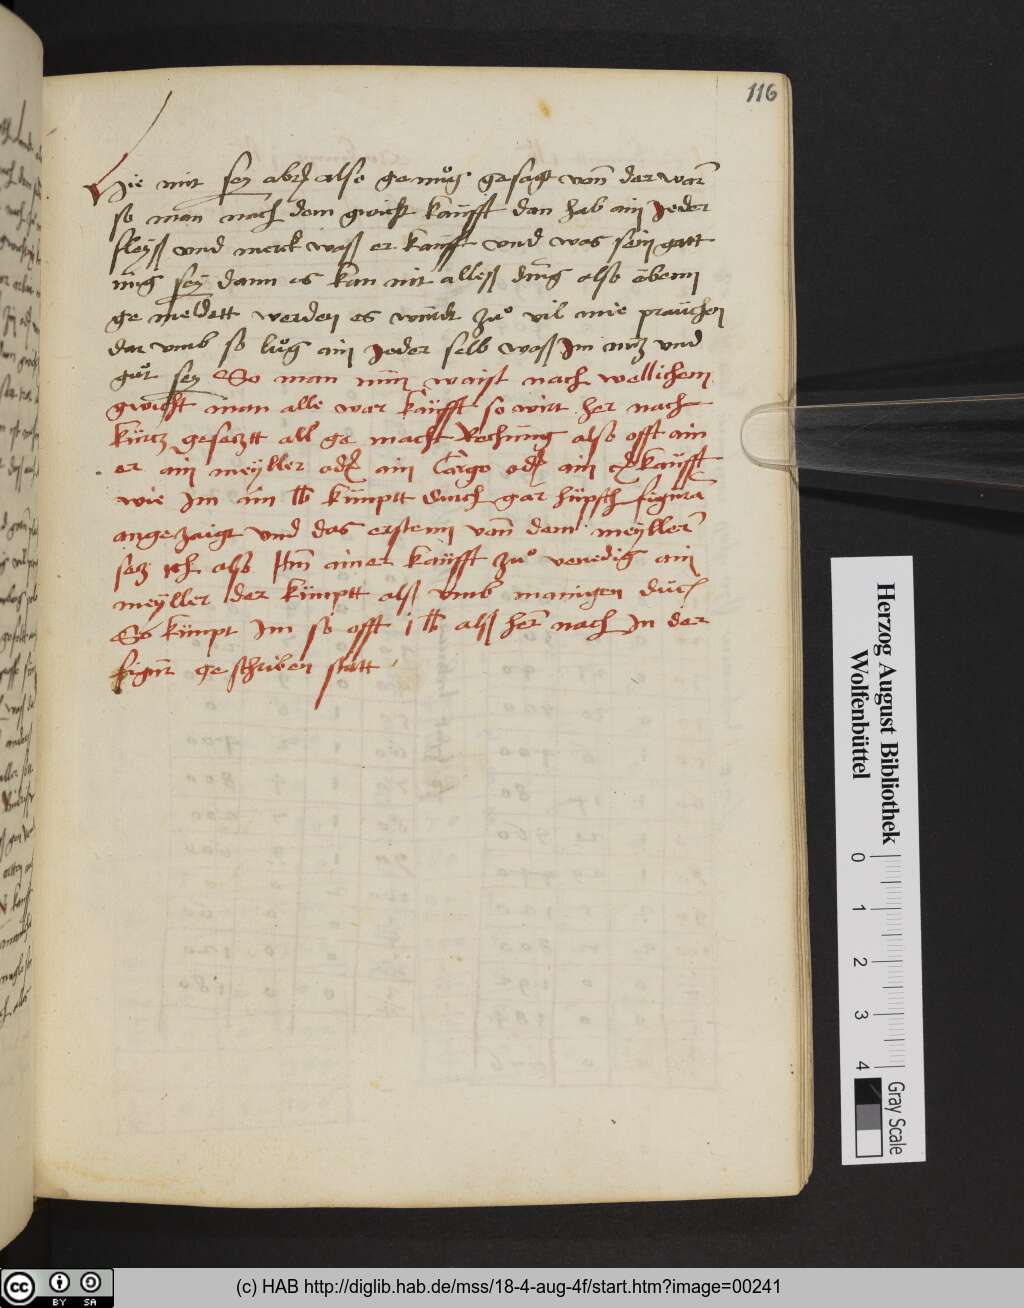 116
Hie mit sey aber also genuog gesagt von der war
so man nach dem gwicht kaufft dan hab ain Jeder
fleyß und merck waß er kaufft und was sein gatt
ung sey dann es kan nit alleß ding also ebenn
ge meldett werden es wurdt zuo vil mie prauchen
dar umb so luog ain Jeder selb waß Im nutz und
guot sey So man nun waist nach wellichem
gwicht man alle war kaufft so wirt her nach
kurtz gesatztt all ge macht Rechnung also offt ain
er ain meyller oder ain Cargo oder ain kaufft
wie Im ain lb kumptt durch gar hüpsch figura
angezaigt und das erstenn von dem meyller
setz ich also Itm ainer kaufft zuo venedig ain
meyller der kumptt alß umb manigen duc
So kumpt Im so offt 1 lb alß her nach In der
figur ge schriben statt
Herzog August Bibliothek
Wolfenbüttel
0 1 2 3 4
Gray Scale
(c) HAB http://diglib.hab.de/mss/18-4-aug-4f/start.htm?image=00241
cc BY SA